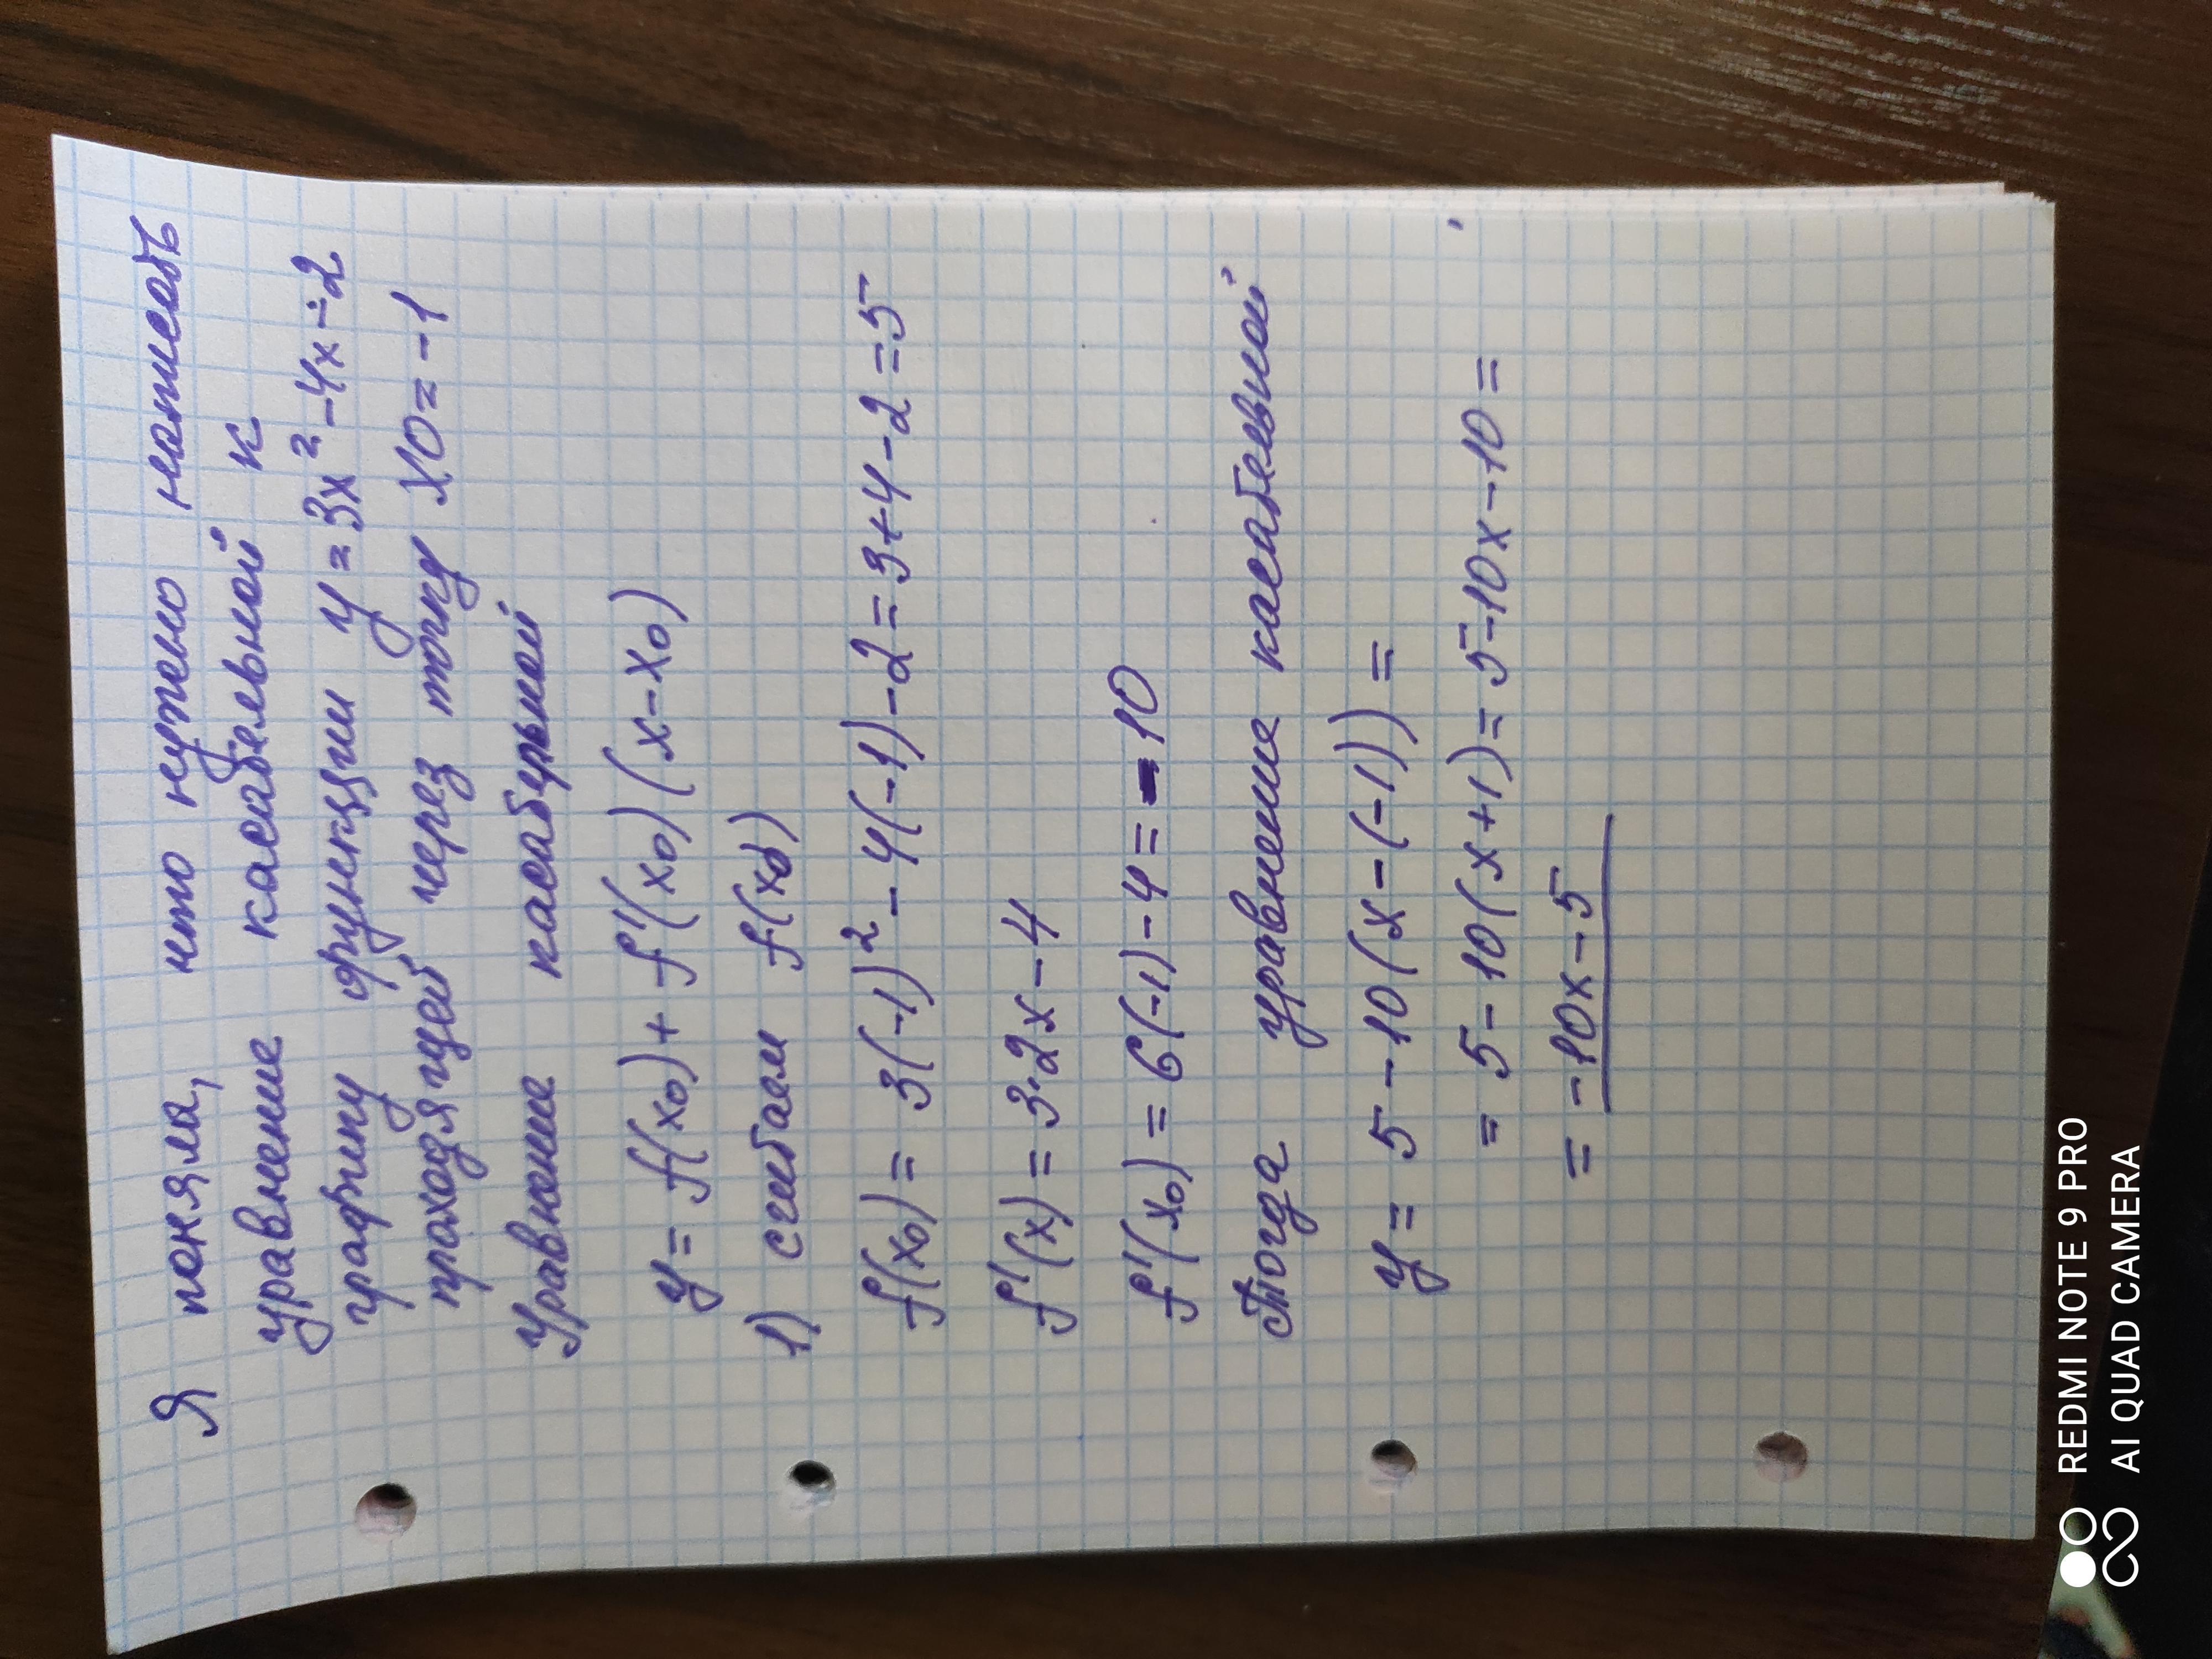 Я поняла, что нужно написать
уравнение касательной к
графику функции y = 3x² - 4x - 2
проходящей через точку x0 = -1
Уравнение касатульной
y = f(x₀) + f'(x₀)(x - x₀)
1) считаем f(x₀)
f(x₀) = 3(-1)² - 4(-1) - 2 = 3 + 4 - 2 = 5
f'(x) = 3·2x - 4
f'(x₀) = 6(-1) - 4 = -10
Тогда уравнение касательной
y = 5 - 10(x - (-1)) =
= 5 - 10(x + 1) = 5 - 10x - 10 =
= -10x - 5
REDMI NOTE 9 PRO
AI QUAD CAMERA